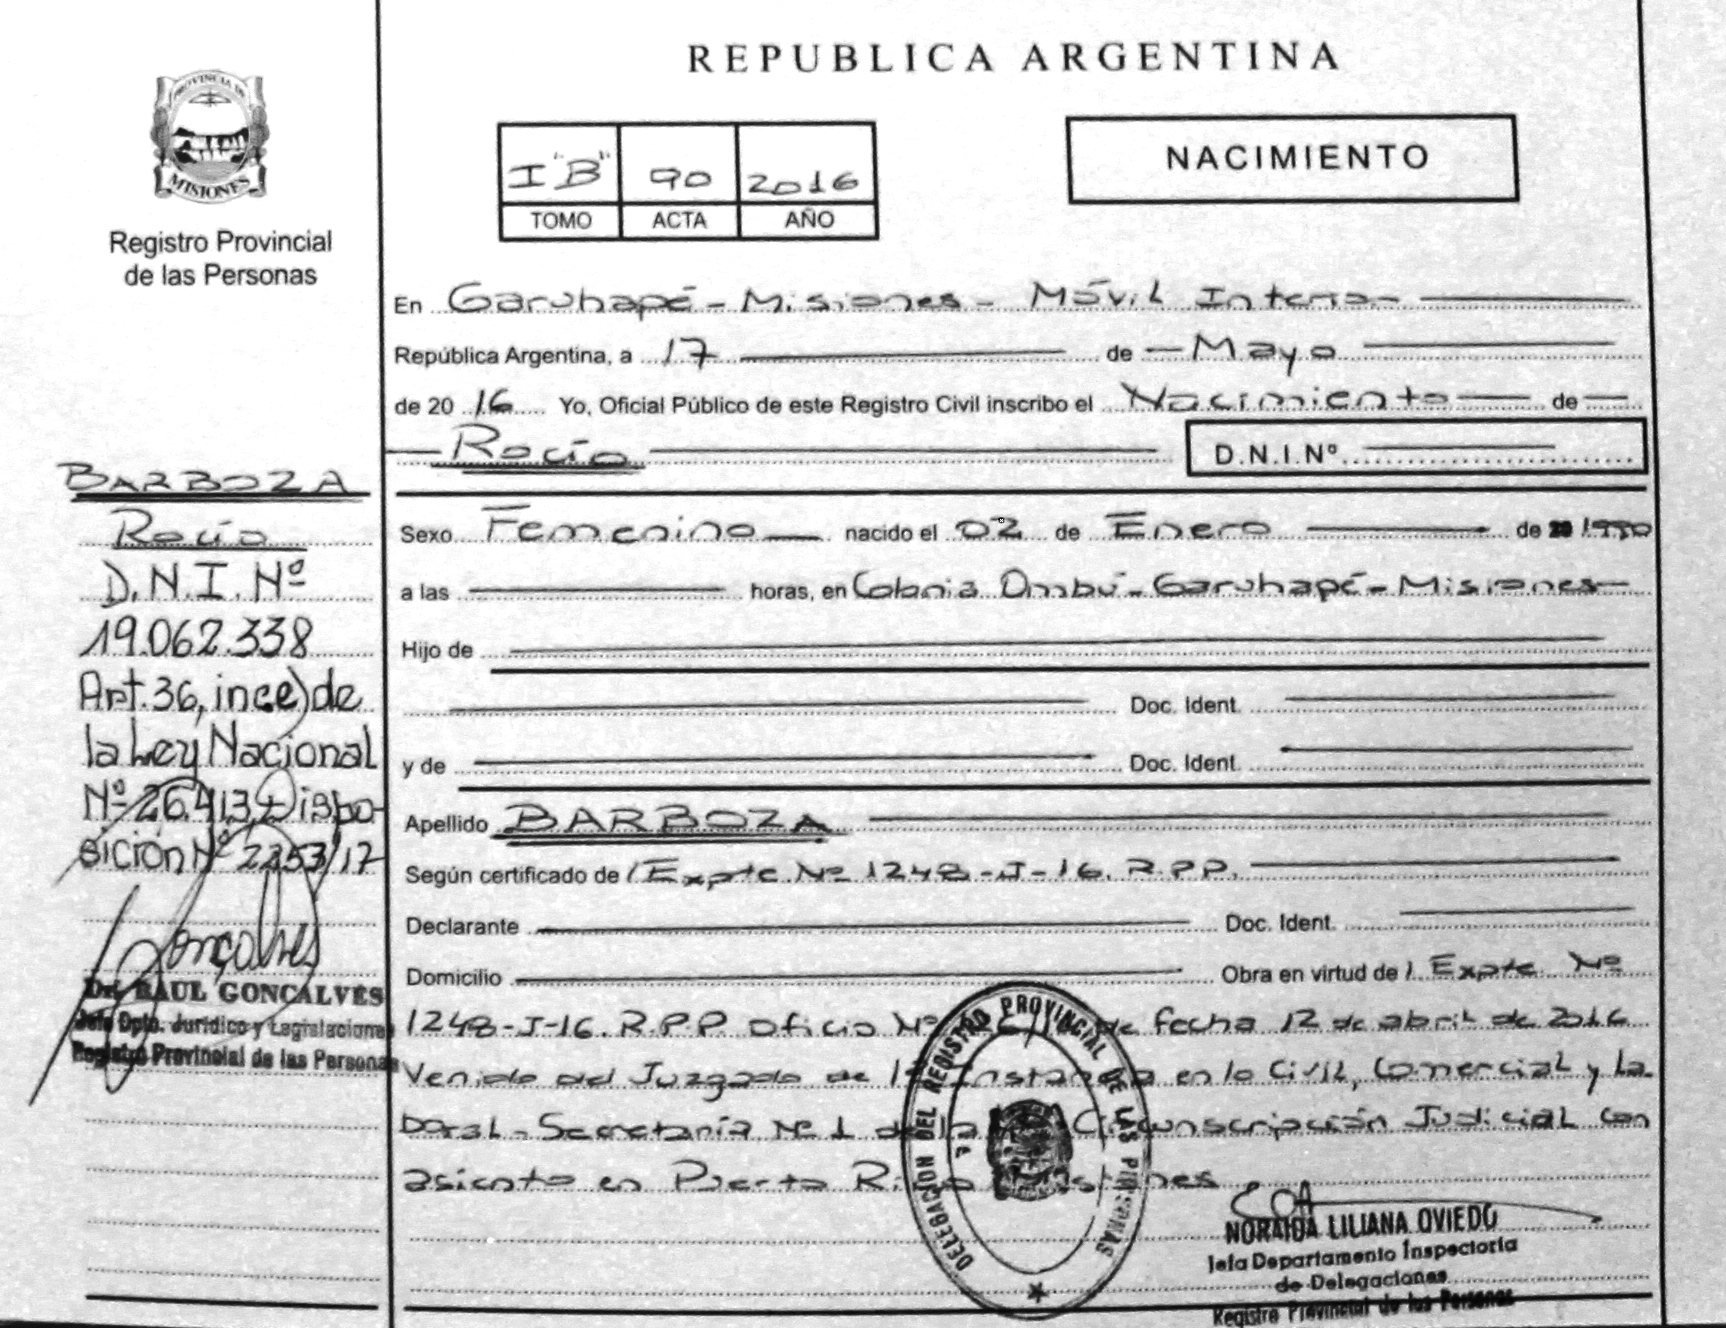 REPUBLICA ARGENTINA
PROVINCIA DE
MISIONES
Registro Provincial
de las Personas
I "B" 90 2016
TOMO ACTA AÑO
NACIMIENTO
En Garuhapé - Misiones - Móvil Interno
República Argentina, a 17 de Mayo
de 20 16 Yo, Oficial Público de este Registro Civil inscribo el Nacimiento de
Rocío D.N.I.Nº
Sexo Femenino nacido el 02 de Enero de 1990
a las horas, en Colonia Ombú - Garuhapé - Misiones
Hijo de
Doc. Ident.
y de Doc. Ident.
Apellido BARBOZA
Según certificado de / Expte Nº 1248-J-16. R.P.P.
Declarante Doc. Ident.
Domicilio Obra en virtud de / Expte Nº
1248-J-16. R.P.P. Oficio Nº de fecha 12 de abril de 2016
Venido del Juzgado de 1º Instancia en lo Civil, Comercial y La
boral - Secretaría Nº 1 de la Circunscripción Judicial con
asiento en Puerto Rico Misiones
BARBOZA
Rocío
D.N.I. Nº
19.062.338
Art. 36, inc e) de
la Ley Nacional
Nº 26.413, Dispo-
sición Nº 2253/17
Goncalves
Dr. RAUL GONCALVES
Jefe Dpto. Jurídico y Legislaciones
Registro Provincial de las Personas
DELEGACION DEL REGISTRO PROVINCIAL DE LAS PERSONAS
NORAIDA LILIANA OVIEDO
Jefa Departamento Inspectoria
de Delegaciones
Registro Provincial de las Personas